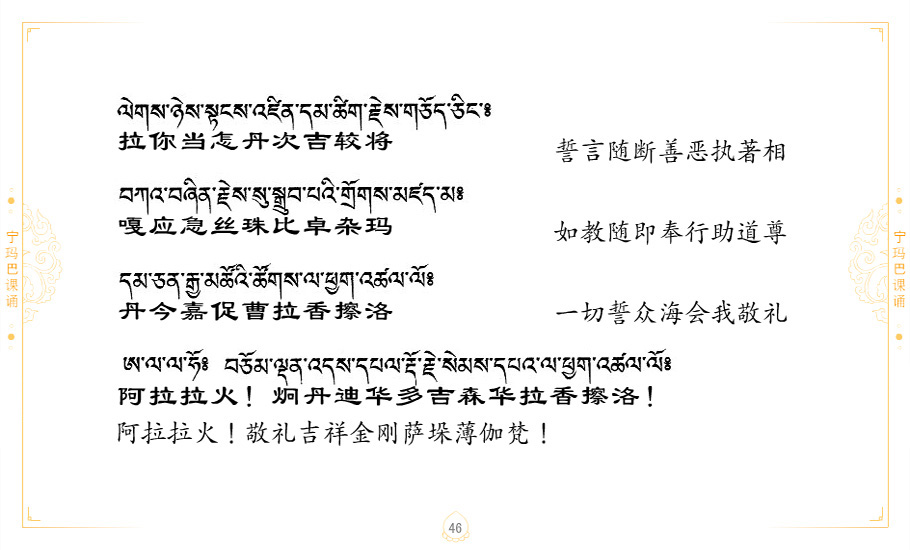 ལེགས་ཉེས་སྟངས་འཛིན་དམ་ཚིག་རྗེས་གཅོད་ཅིང༔
拉你当怎丹次吉较将 誓言随断善恶执著相
བཀའ་བཞིན་རྗེས་སུ་སྒྲུབ་པའི་གྲོགས་མཛད་མ༔
嘎应急丝珠比卓杂玛 如教随即奉行助道尊
དམ་ཅན་རྒྱ་མཚོའི་ཚོགས་ལ་ཕྱག་འཚལ་ལོ༔
丹今嘉促曹拉香擦洛 一切誓众海会我敬礼
ཨ་ལ་ལ་ཧོ༔ བཅོམ་ལྡན་འདས་དཔལ་རྡོ་རྗེ་སེམས་དཔའ་ལ་ཕྱག་འཚལ་ལོ༔
阿拉拉火！炯丹迪华多吉森华拉香擦洛！
阿拉拉火！敬礼吉祥金刚萨垛薄伽梵！
宁玛巴课诵
宁玛巴课诵
46